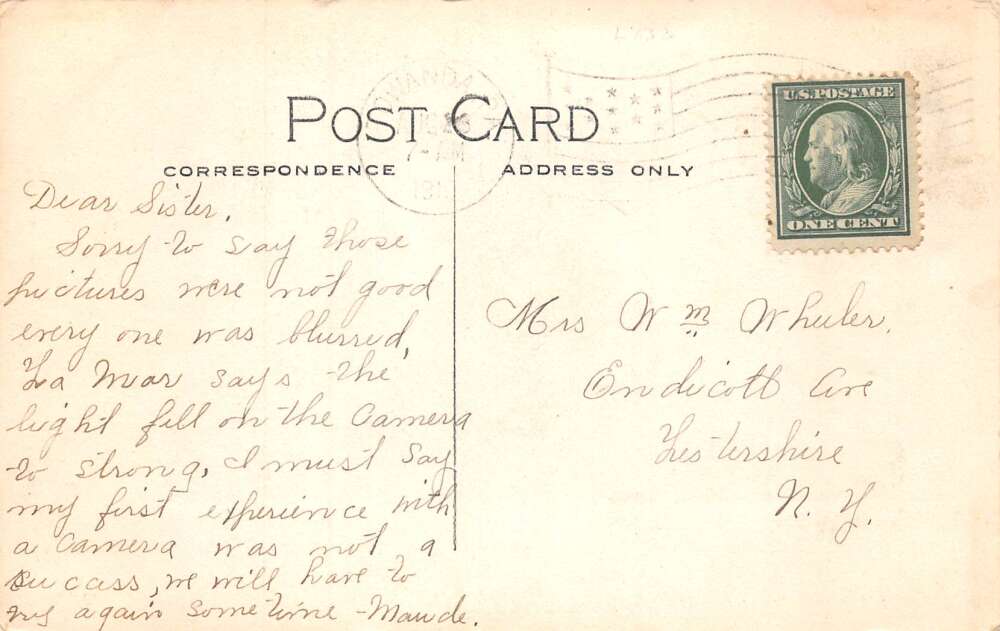 POST CARD
CORRESPONDENCE
ADDRESS ONLY
U.S. POSTAGE
ONE CENT
Dear Sister,
Sorry to say those
pictures were not good
every one was blurred,
La Mar says the
light fell on the Camera
to strong, I must say
my first experience with
a camera was not a
succass, we will have to
try again sometime - Maude.
Mrs Wm Wheeler.
Endicott Ave
Lestershire
N. Y.